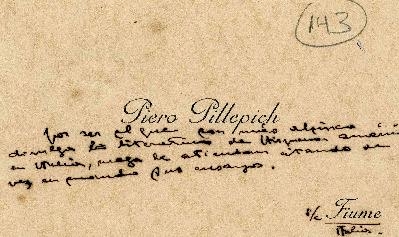 143
Piero Pillepich
por ser el que con más
divulga la literatura de Hispano América
en Italia, ruega le atiendan enviando de
vez en cuando sus ensayos.
Fiume
Italia.